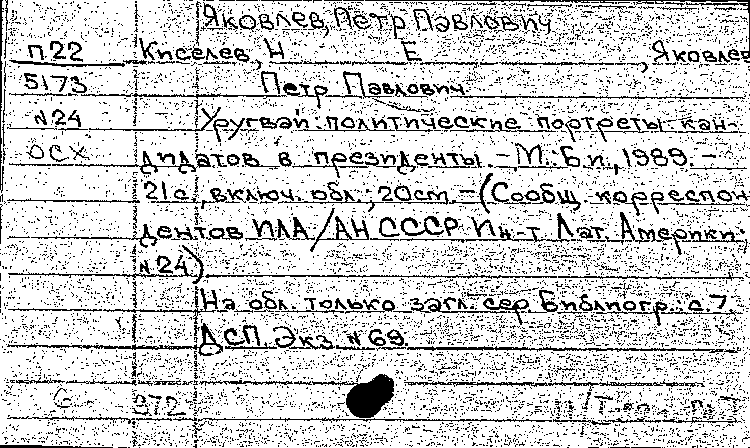 Яковлев, Петр Павлович
П22 Киселев, Н Е , Яковлев
5173 Петр Павлович
N24 Уругвай: политические портреты кан-
ОСХ дидатов в президенты. – М.: Б.и., 1989. –
21с., включ. обл.; 20см. – (Сообщ. корреспон
дентов ИЛА/АН СССР Ин-т Лат. Америки;
N24)
На обл. только загл. сер. Библиогр.: с.7.
ДСП. Экз. N69
372